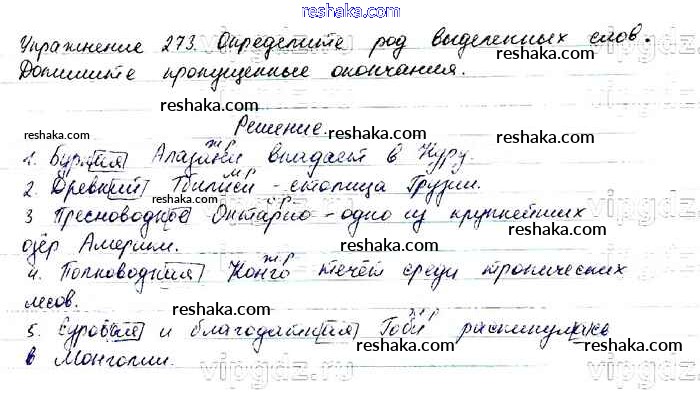 reshaka.com
Упражнение 273. Определите род выделенных слов.
Допишите пропущенные окончания.
reshaka.com reshaka.com
Решение.
reshaka.com reshaka.com
ж.р
1. Бурная Алазани впадает в Куру.
м.р
2. Древний Тбилиси - столица Грузии.
reshaka.com reshaka.com
ср
3 Пресноводное Онтарио - одно из крупнейших
озёр Америки.
reshaka.com reshaka.com
ж.р
4. Полноводная Конго течёт среди тропических
лесов.
reshaka.com reshaka.com
ж.р
5. Суровая и благодатная Гоби раскинулась
в Монголии.
reshaka.com reshaka.com
vipgdz.ru